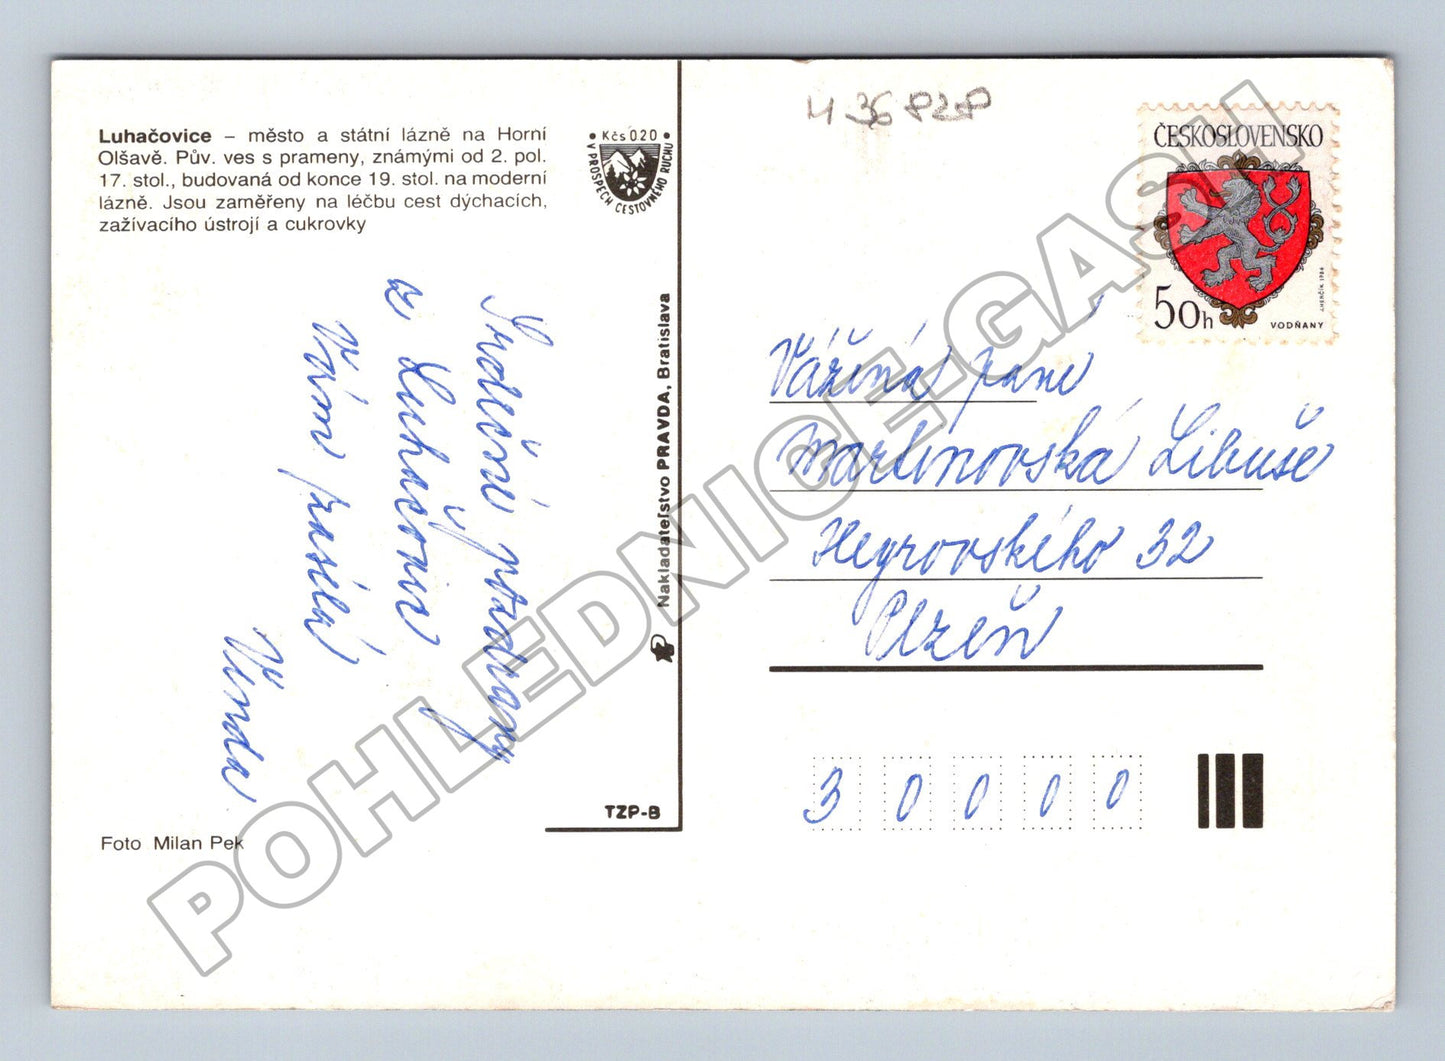 Luhačovice – město a státní lázně na Horní
Olšavě. Pův. ves s prameny, známými od 2. pol.
17. stol., budovaná od konce 19. stol. na moderní
lázně. Jsou zaměřeny na léčbu cest dýchacích,
zažívacího ústrojí a cukrovky
• Kčs 020 •
V PROSPĚCH CESTOVNÉHO RUCHU
Srdečné pozdravy
z Luhačovic
Vám posílá
Foto Milan Pek
Nakladateľstvo PRAVDA, Bratislava
TZP-B
436828
ČESKOSLOVENSKO
50h
J.HERČÍK 1986
VODŇANY
Vážená paní
Martinovská Libuše
Hegrovského 32
Plzeň
3 0 0 0 0
POHLEDNICE-GASH